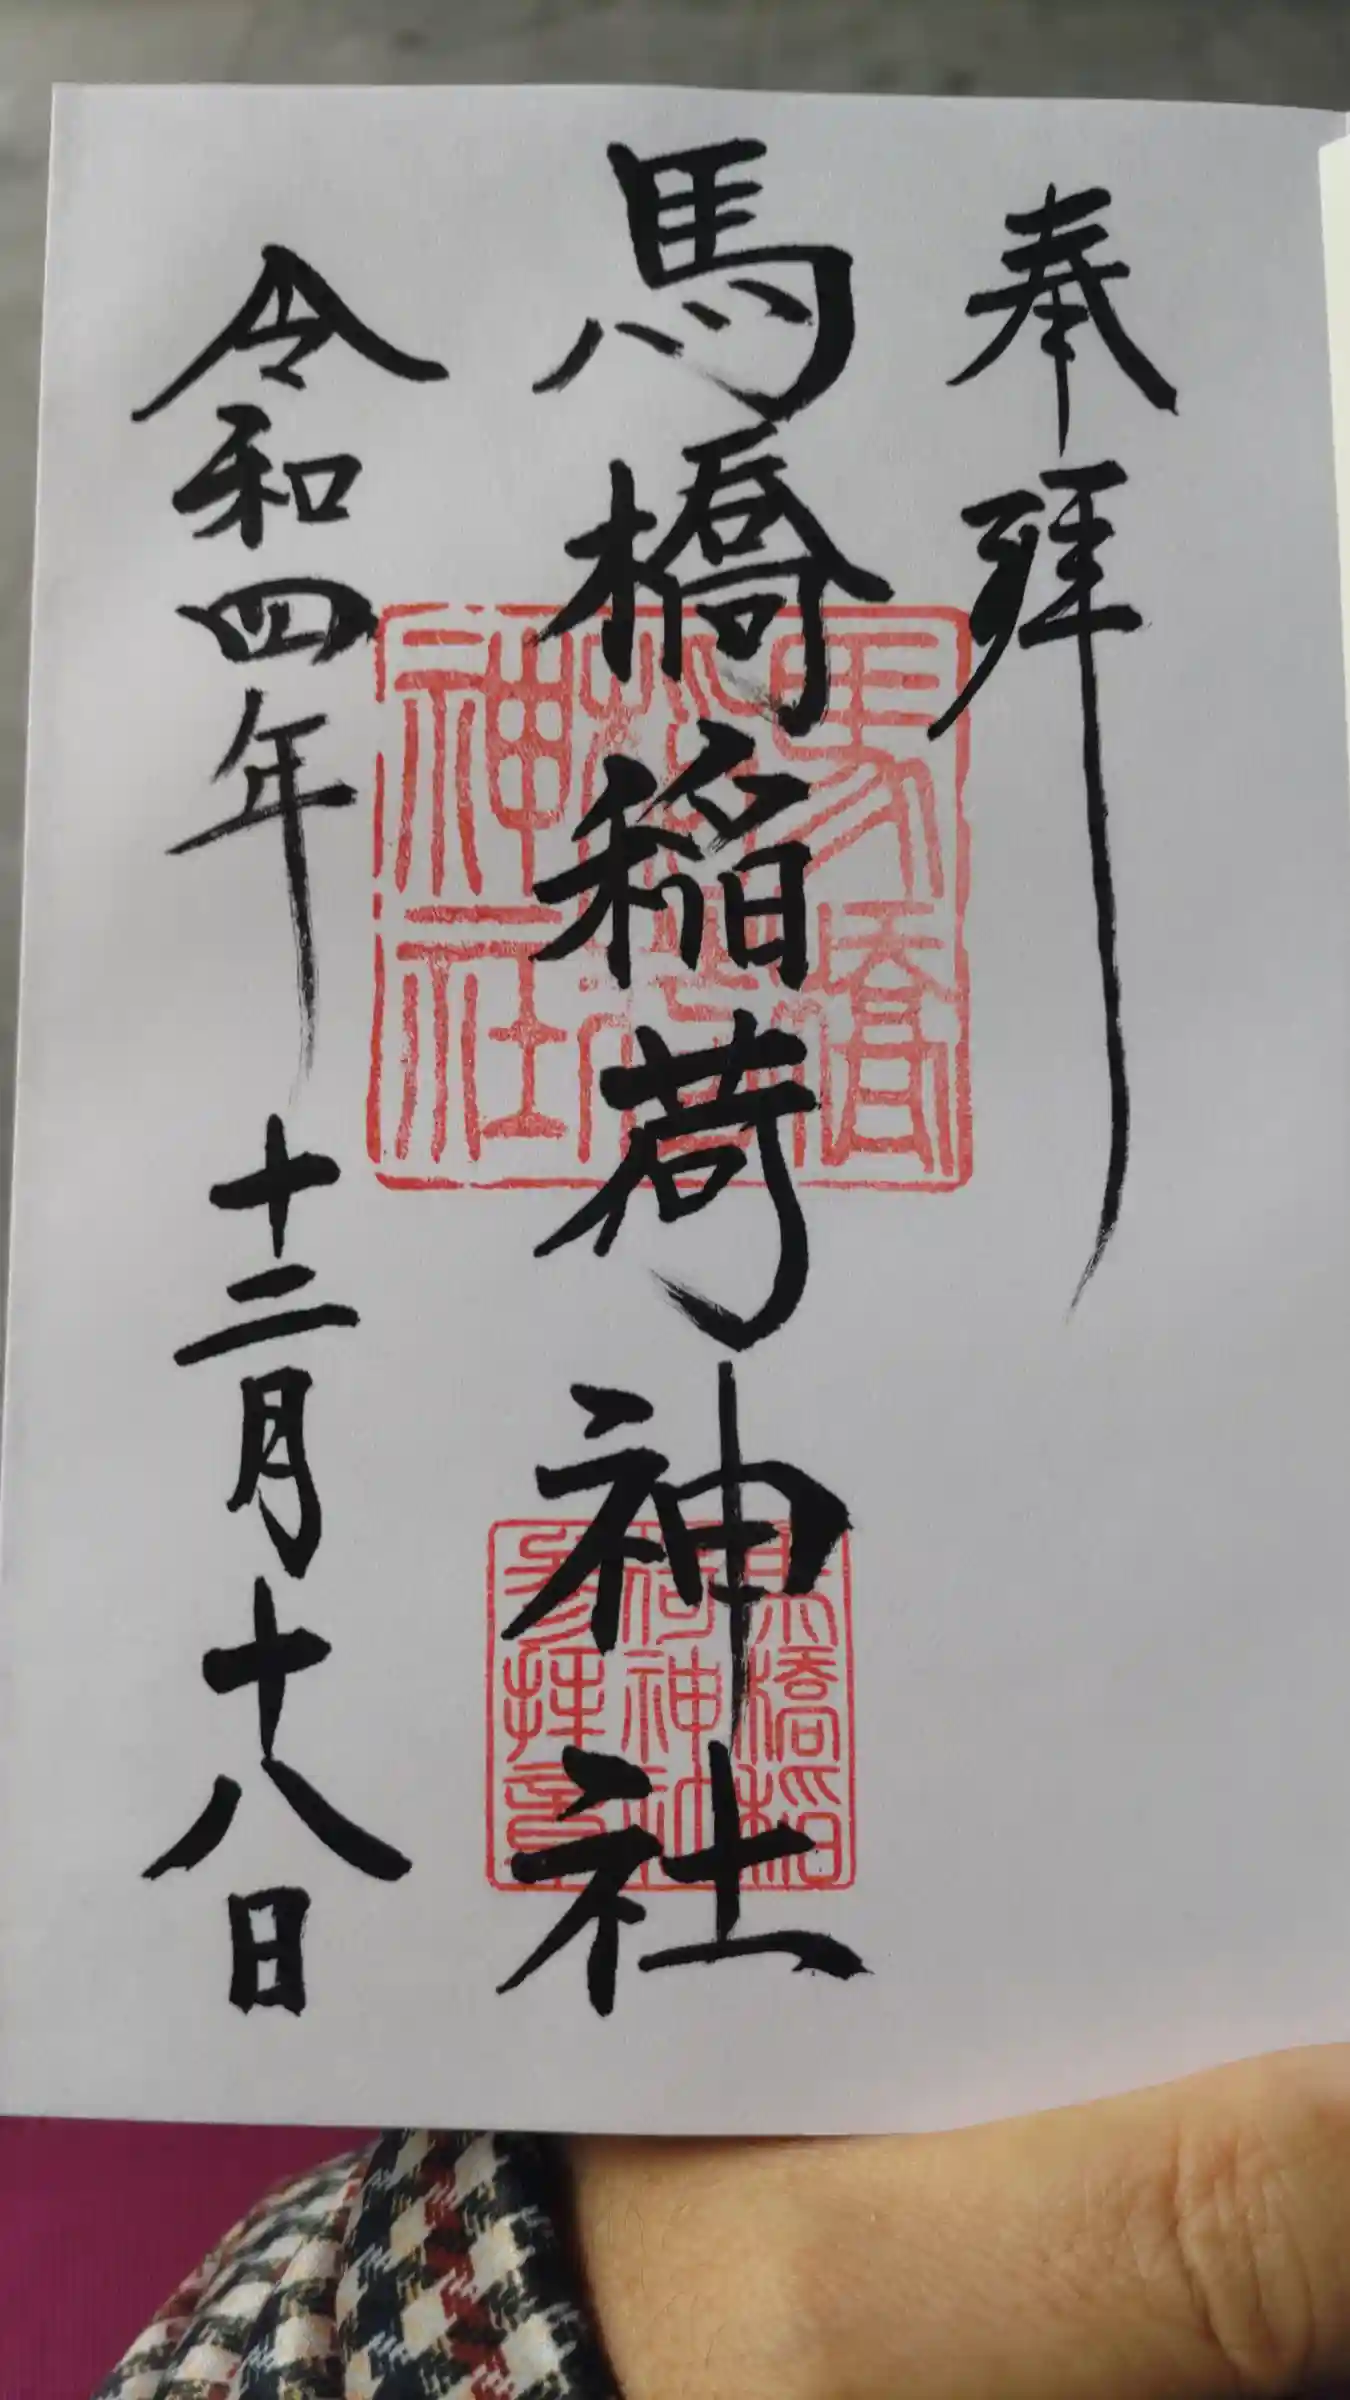 奉拝
馬橋稲荷神社
令和四年十二月十八日
馬橋
稲荷
神社
馬橋稲
荷神社
参拝章